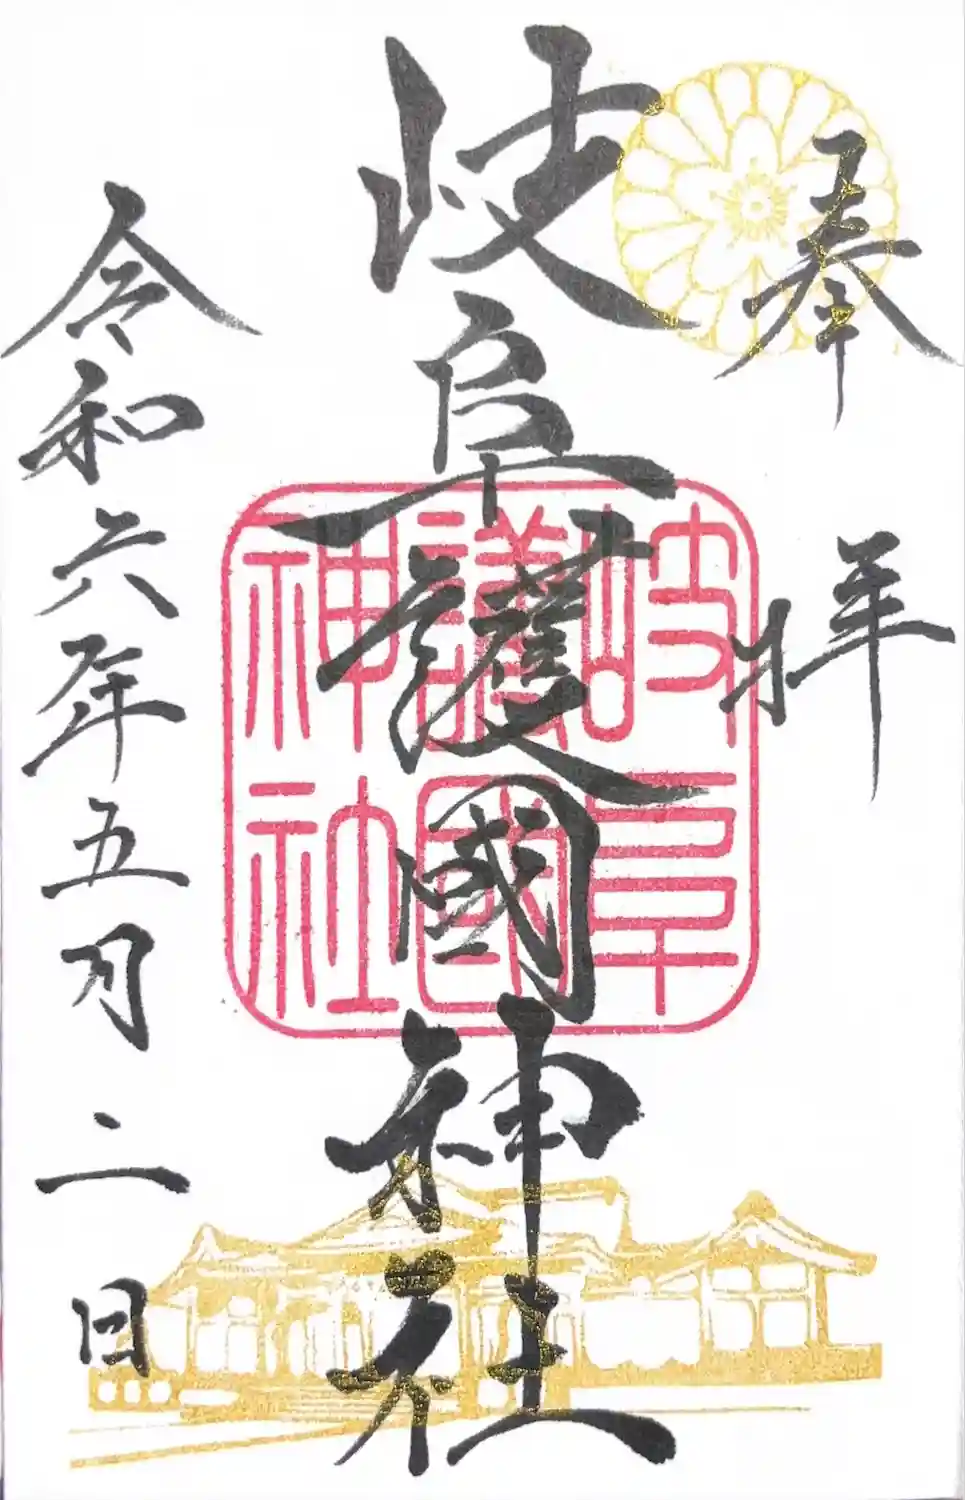 奉拝
岐阜護國神社
岐阜
護國
神社
令和六年五月二日